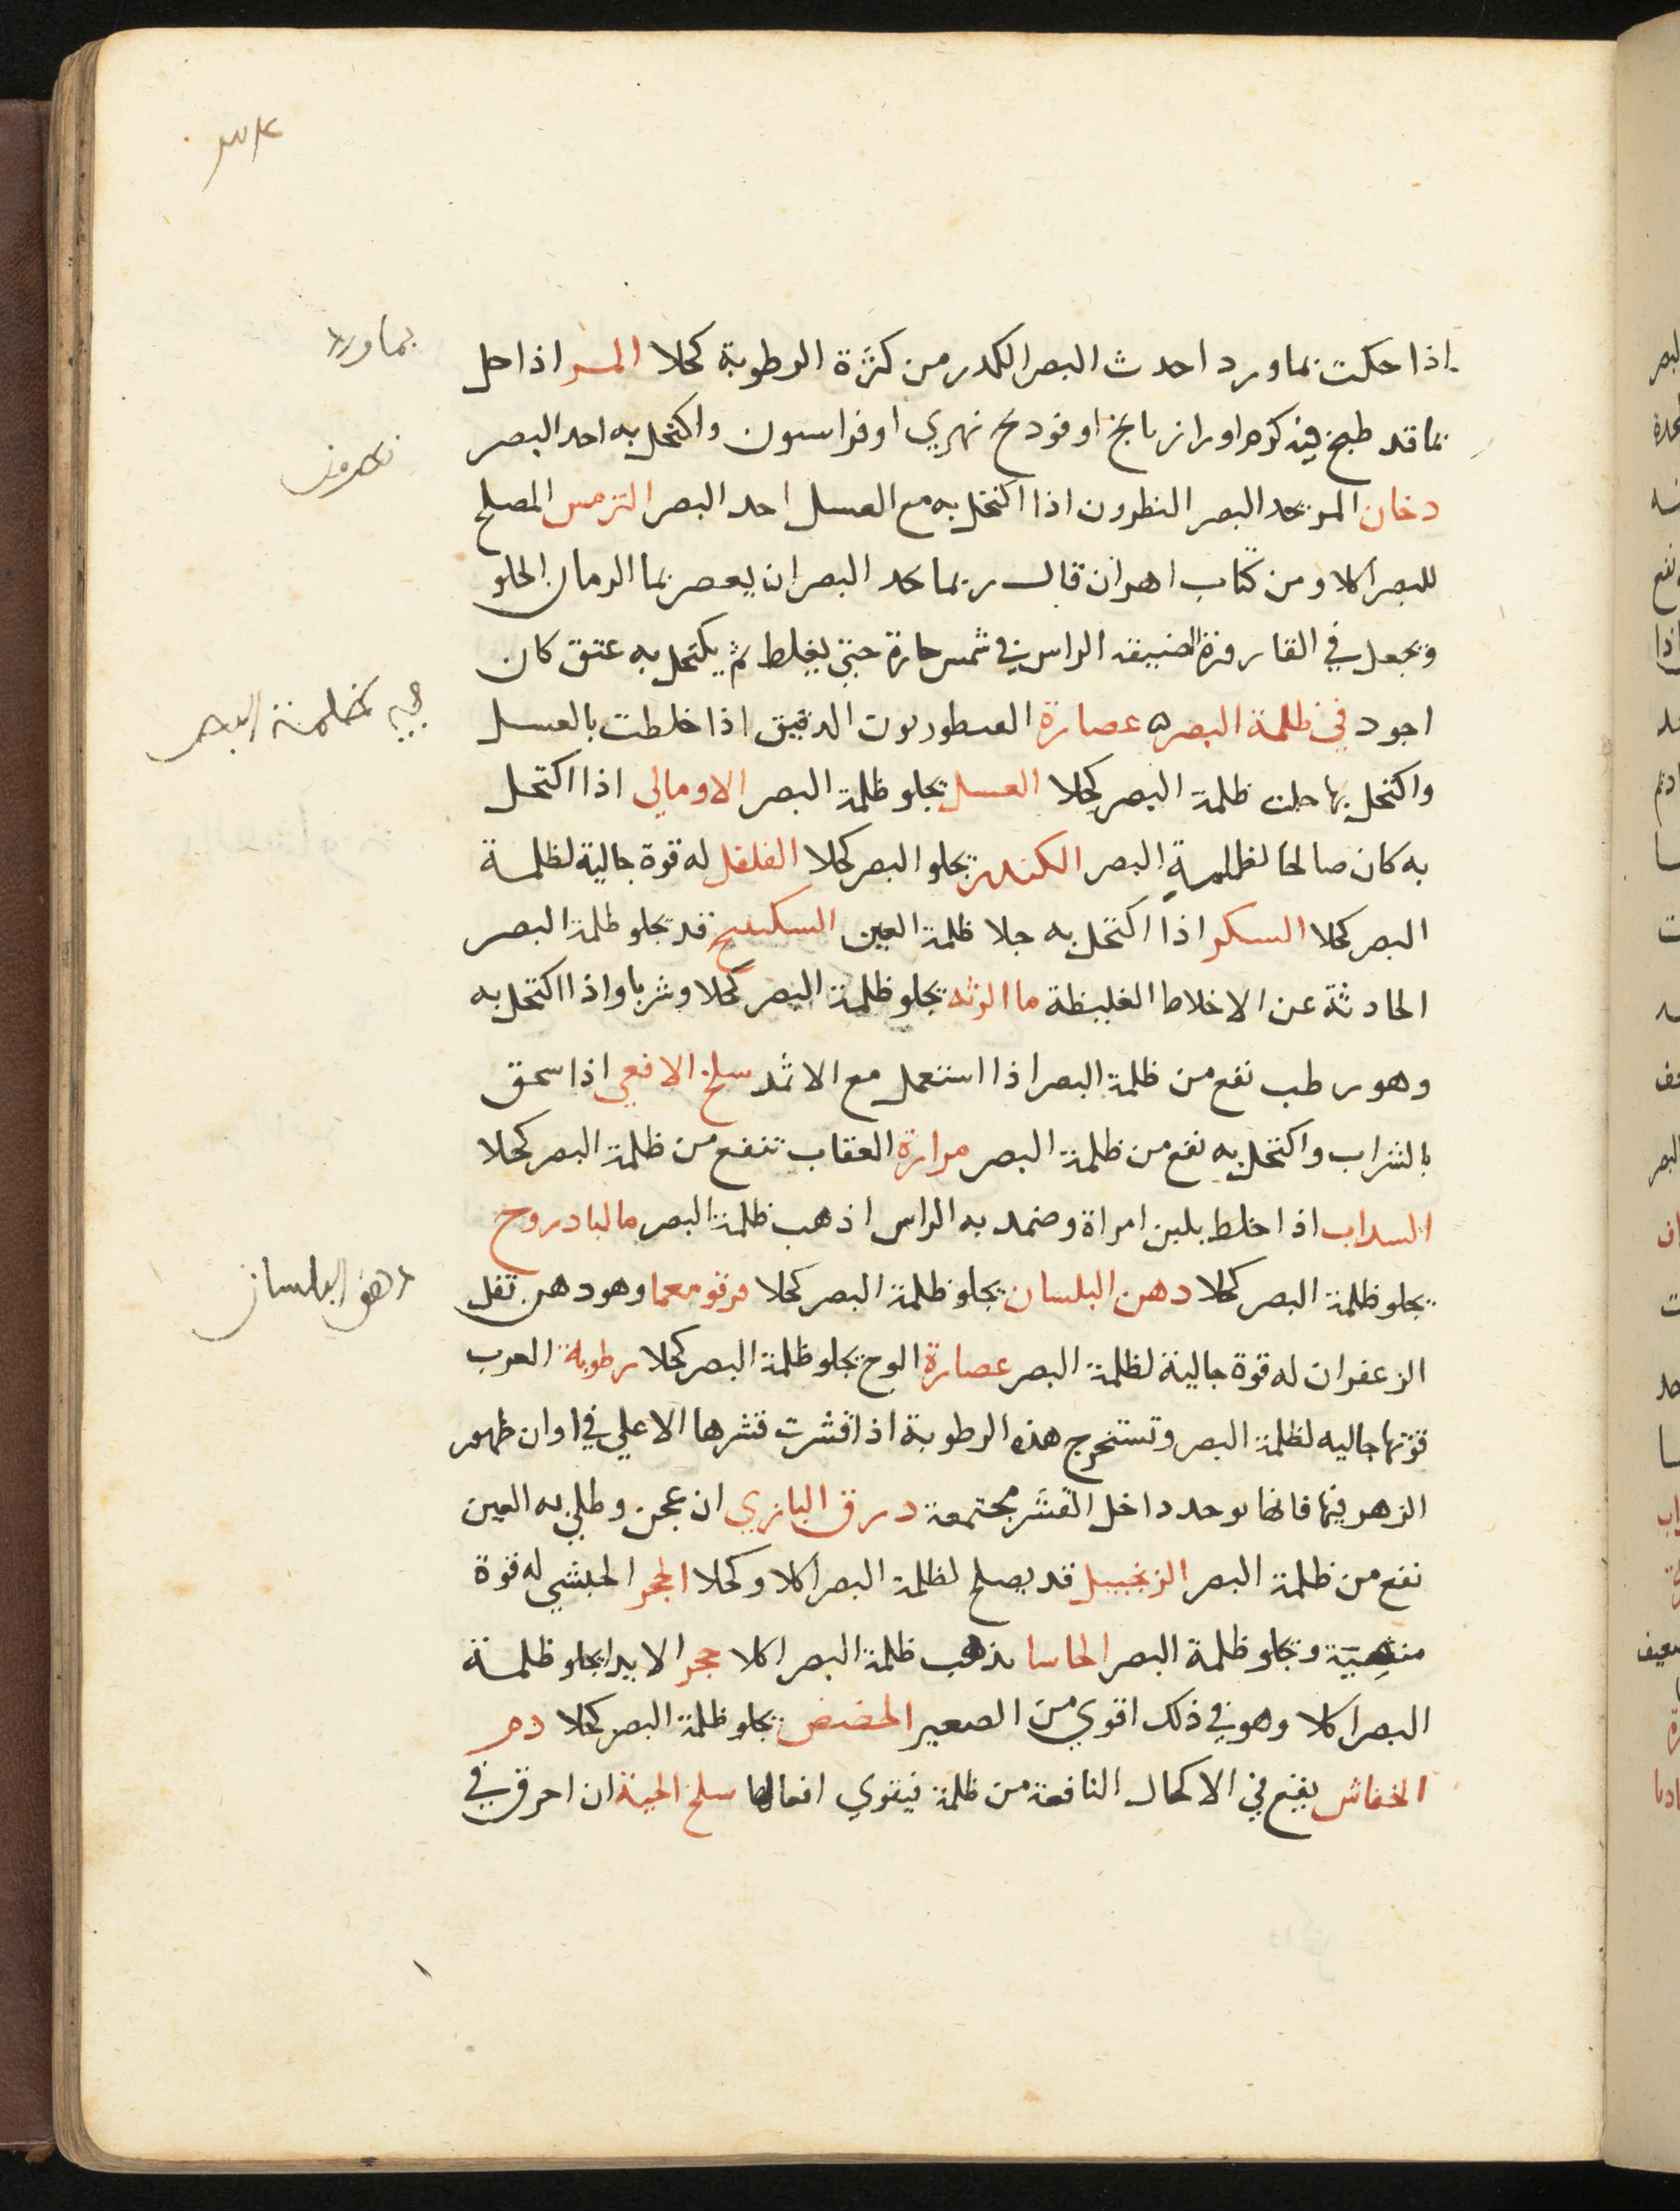 اذا حكت بماورد احدث البصر الكدر من كثرة الرطوبة كحلا المر اذا حل
بما قد طبخ فيه كرم او رازيانج او فودنج نهري او فراسيون واكتحل به احد البصر
دخان المر يحد البصر النطرون اذا اكتحل به مع العسل احد البصر الترمس المصلح
للبصر اكلا ومن كتاب اهرن قال ربما يحد البصر ان يعصر بما الرمان الحلو
ويجعل في القارورة الضيقة الراس في شمس حارة حتى يغلظ ثم يكتحل به عتق كان
اجود في ظلمة البصر عصارة القنطوريون الدقيق اذا خلطت بالعسل
واكتحل بها جلت ظلمة البصر كحلا العسل يجلو ظلمة البصر الاومالي اذا اكتحل
به كان صالحا لظلمة البصر الكندر يجلو البصر كحلا الفلفل له قوة جالية لظلمة
البصر كحلا السكر اذا اكتحل به جلا ظلمة العين السكبينج قد يجلو ظلمة البصر
الحادثة عن الاخلاط الغليظة ما الرثه يجلو ظلمة البصر كحلا وشربا واذا اكتحل به
وهو رطب نفع من ظلمة البصر اذا استعمل مع الاثمد سلخ الافعي اذا سحق
بالشراب واكتحل به نفع من ظلمة البصر مرارة العقاب تنفع من ظلمة البصر كحلا
السداب اذا خلط بلبن امراة وضمد به الراس اذهب ظلمة البصر ما البادروج
يجلو ظلمة البصر كحلا دهن البلسان يجلو ظلمة البصر كحلا قرقومعما وهو دهن ثفل
الزعفران له قوة جالية لظلمة البصر عصارة الوج يجلو ظلمة البصر كحلا رطوبة الغرب
قوتها جاليه لظلمة البصر وتستخرج هذه الرطوبة اذا قشرت قشرها الاعلي في اوان ظهور
الزهر فيها فانها توجد داخل القشر مجتمعة درق البازي ان عجن وطلي به العين
نفع من ظلمة البصر الزنجبيل قد يصلح لظلمة البصر اكلا وكحلا الحجر الحبشي له قوة
منقية وتجلو ظلمة البصر الحاسا يذهب ظلمة البصر اكلا حجر يجلو ظلمة
البصر اكلا وهو في ذلك اقوي من الصعير الحضض يجلو ظلمة البصر كحلا دم
الخفاش يقع في الاكحال النافعة من ظلمة فيقوي افعالها سلخ الحية ان احرق في
بماورد
نطرون
في ظلمة البصر
دهن البلسان